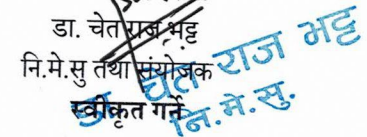 डा. चेत राज भट्ट
नि.मे.सु तथा संयोजक
स्वीकृत गर्ने
डा. चेत राज भट्ट
नि.मे.सु.